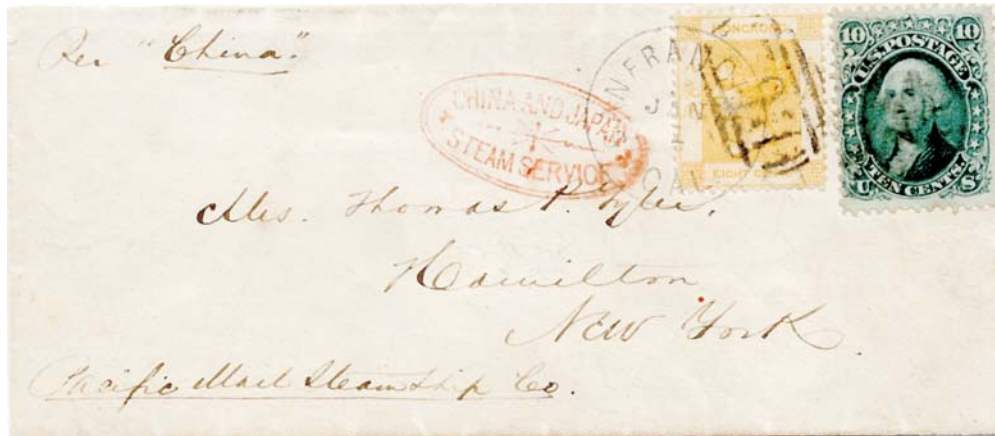 Per "China"
CHINA AND JAPAN
STEAM SERVICE
NFRANCISCO
JAN
CAL
HONGKONG
EIGHT
10 10
U.S. POSTAGE
TEN CENTS.
U S
Mrs. Thomas P. Tyler.
Hamilton
New York.
Pacific Mail Steam Ship Co.